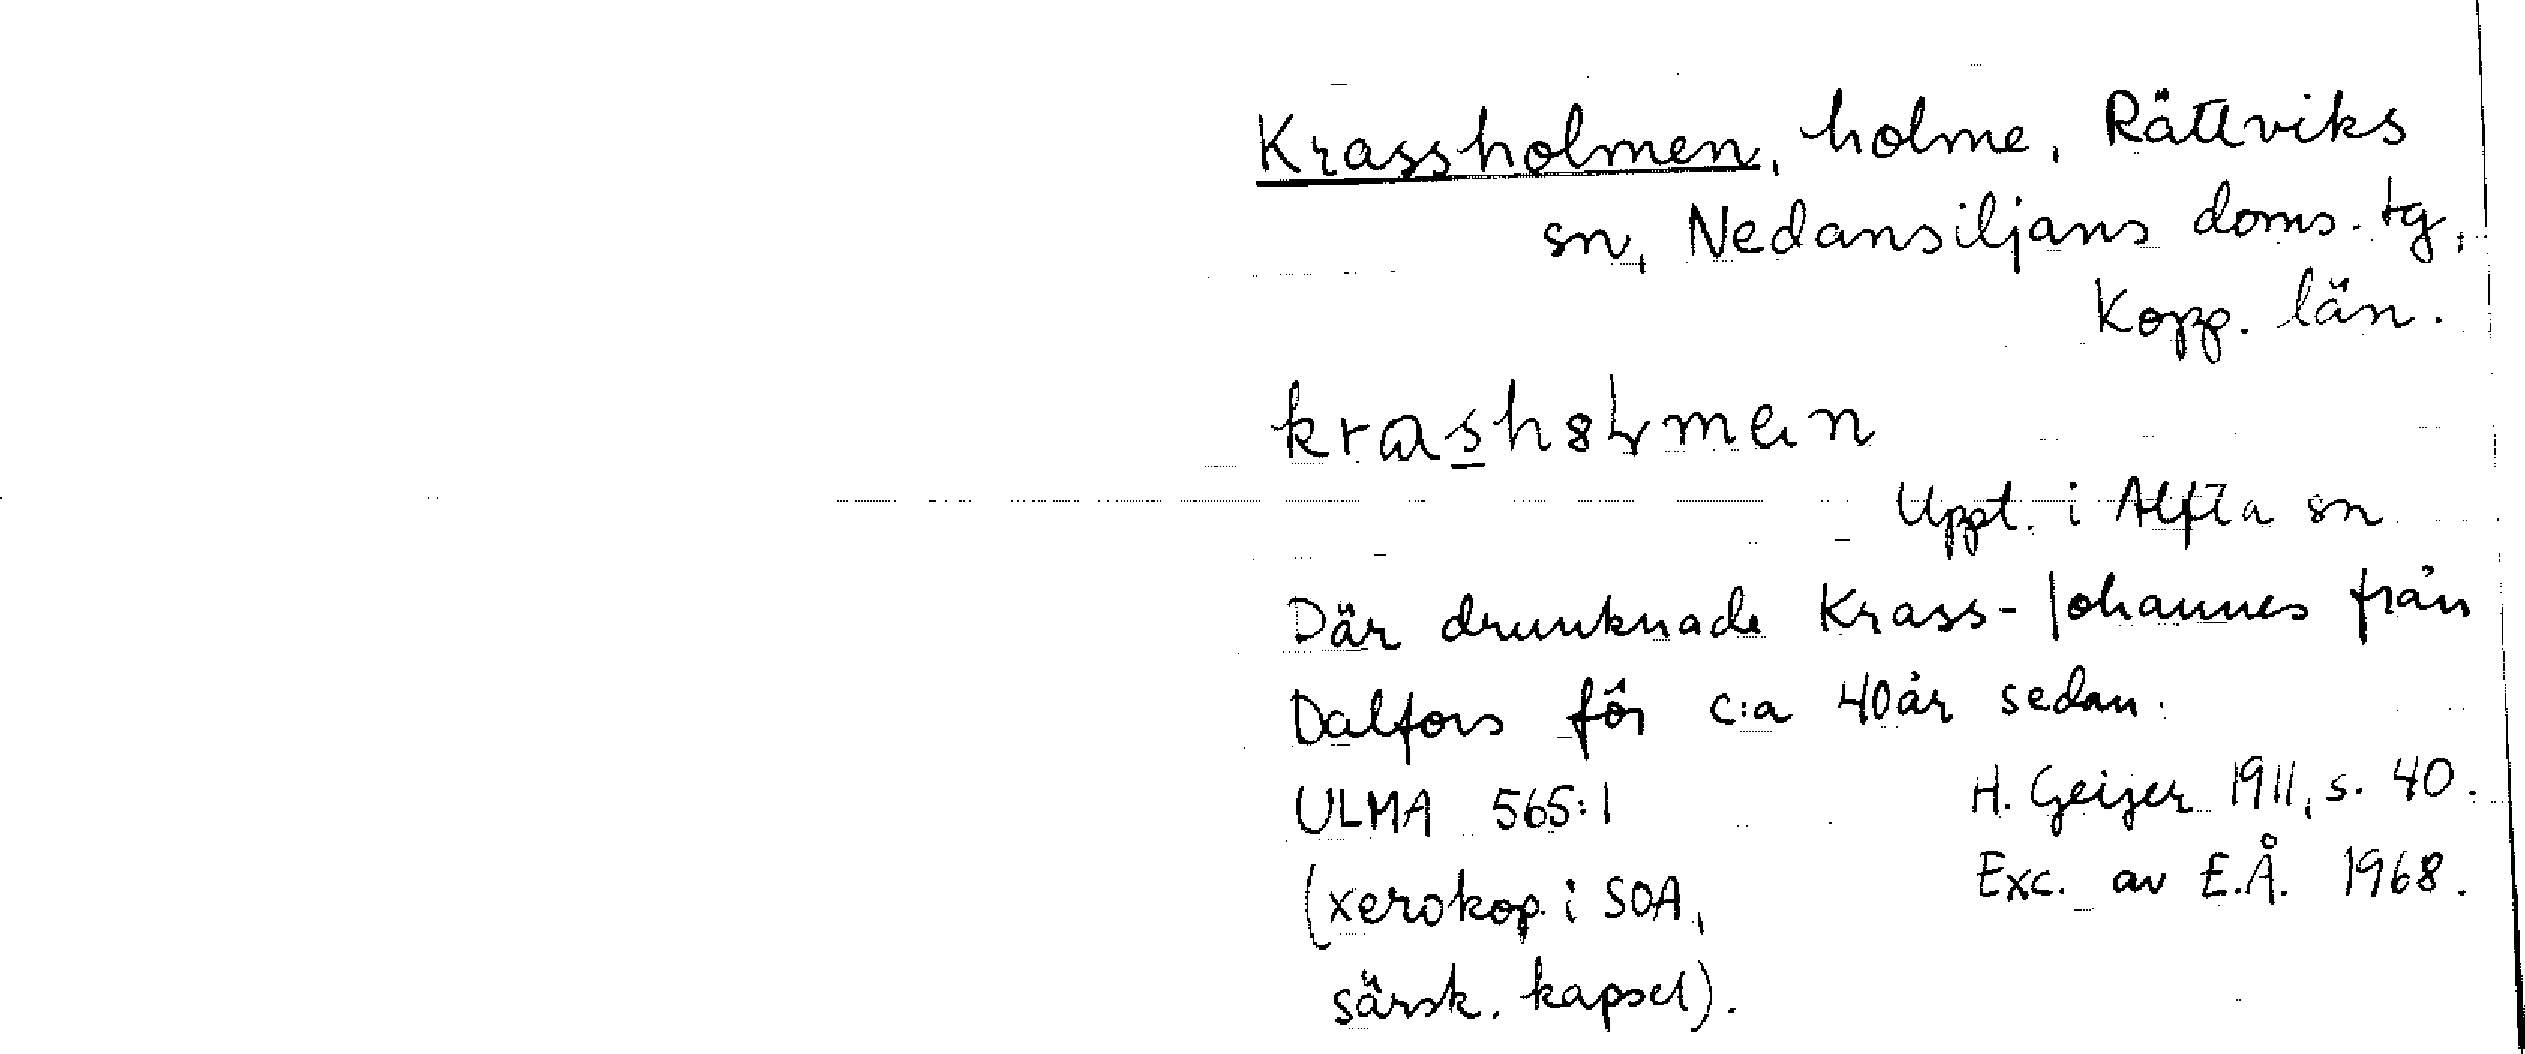 Krassholmen, holme, Rättviks
sn, Nedansiljans doms. tg,
Kopp. län.
Uppt. i Alfta sn
Där drunknade Krass-Johannes från
Dalfors för c:a 40 år sedan.
ULMA 565:1 H. Geijer 1911, s. 40.
(xerokop. i SOA, Exc. av E.Å. 1968.
särsk. kapsel).